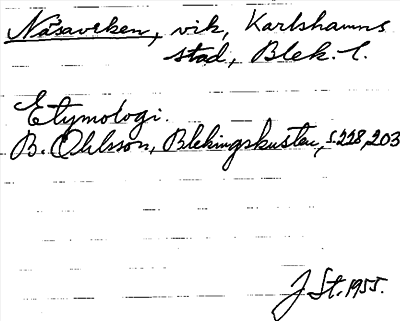 Näsaveken, vik, Karlshamns
stad, Blek. l.
Etymologi.
B. Ohlsson, Blekingskusten, s. 228, 203
J St. 1955.